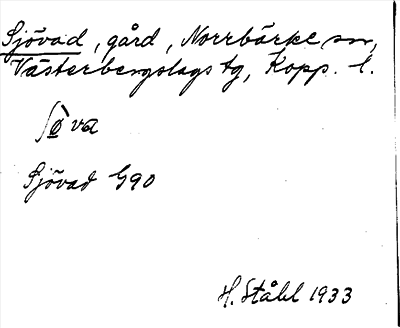 Sjövad, gård, Norrbärke sn,
Västerbergslags tg, Kopp. l.
ʃö̀va
Sjövad G90
H. Ståhl 1933